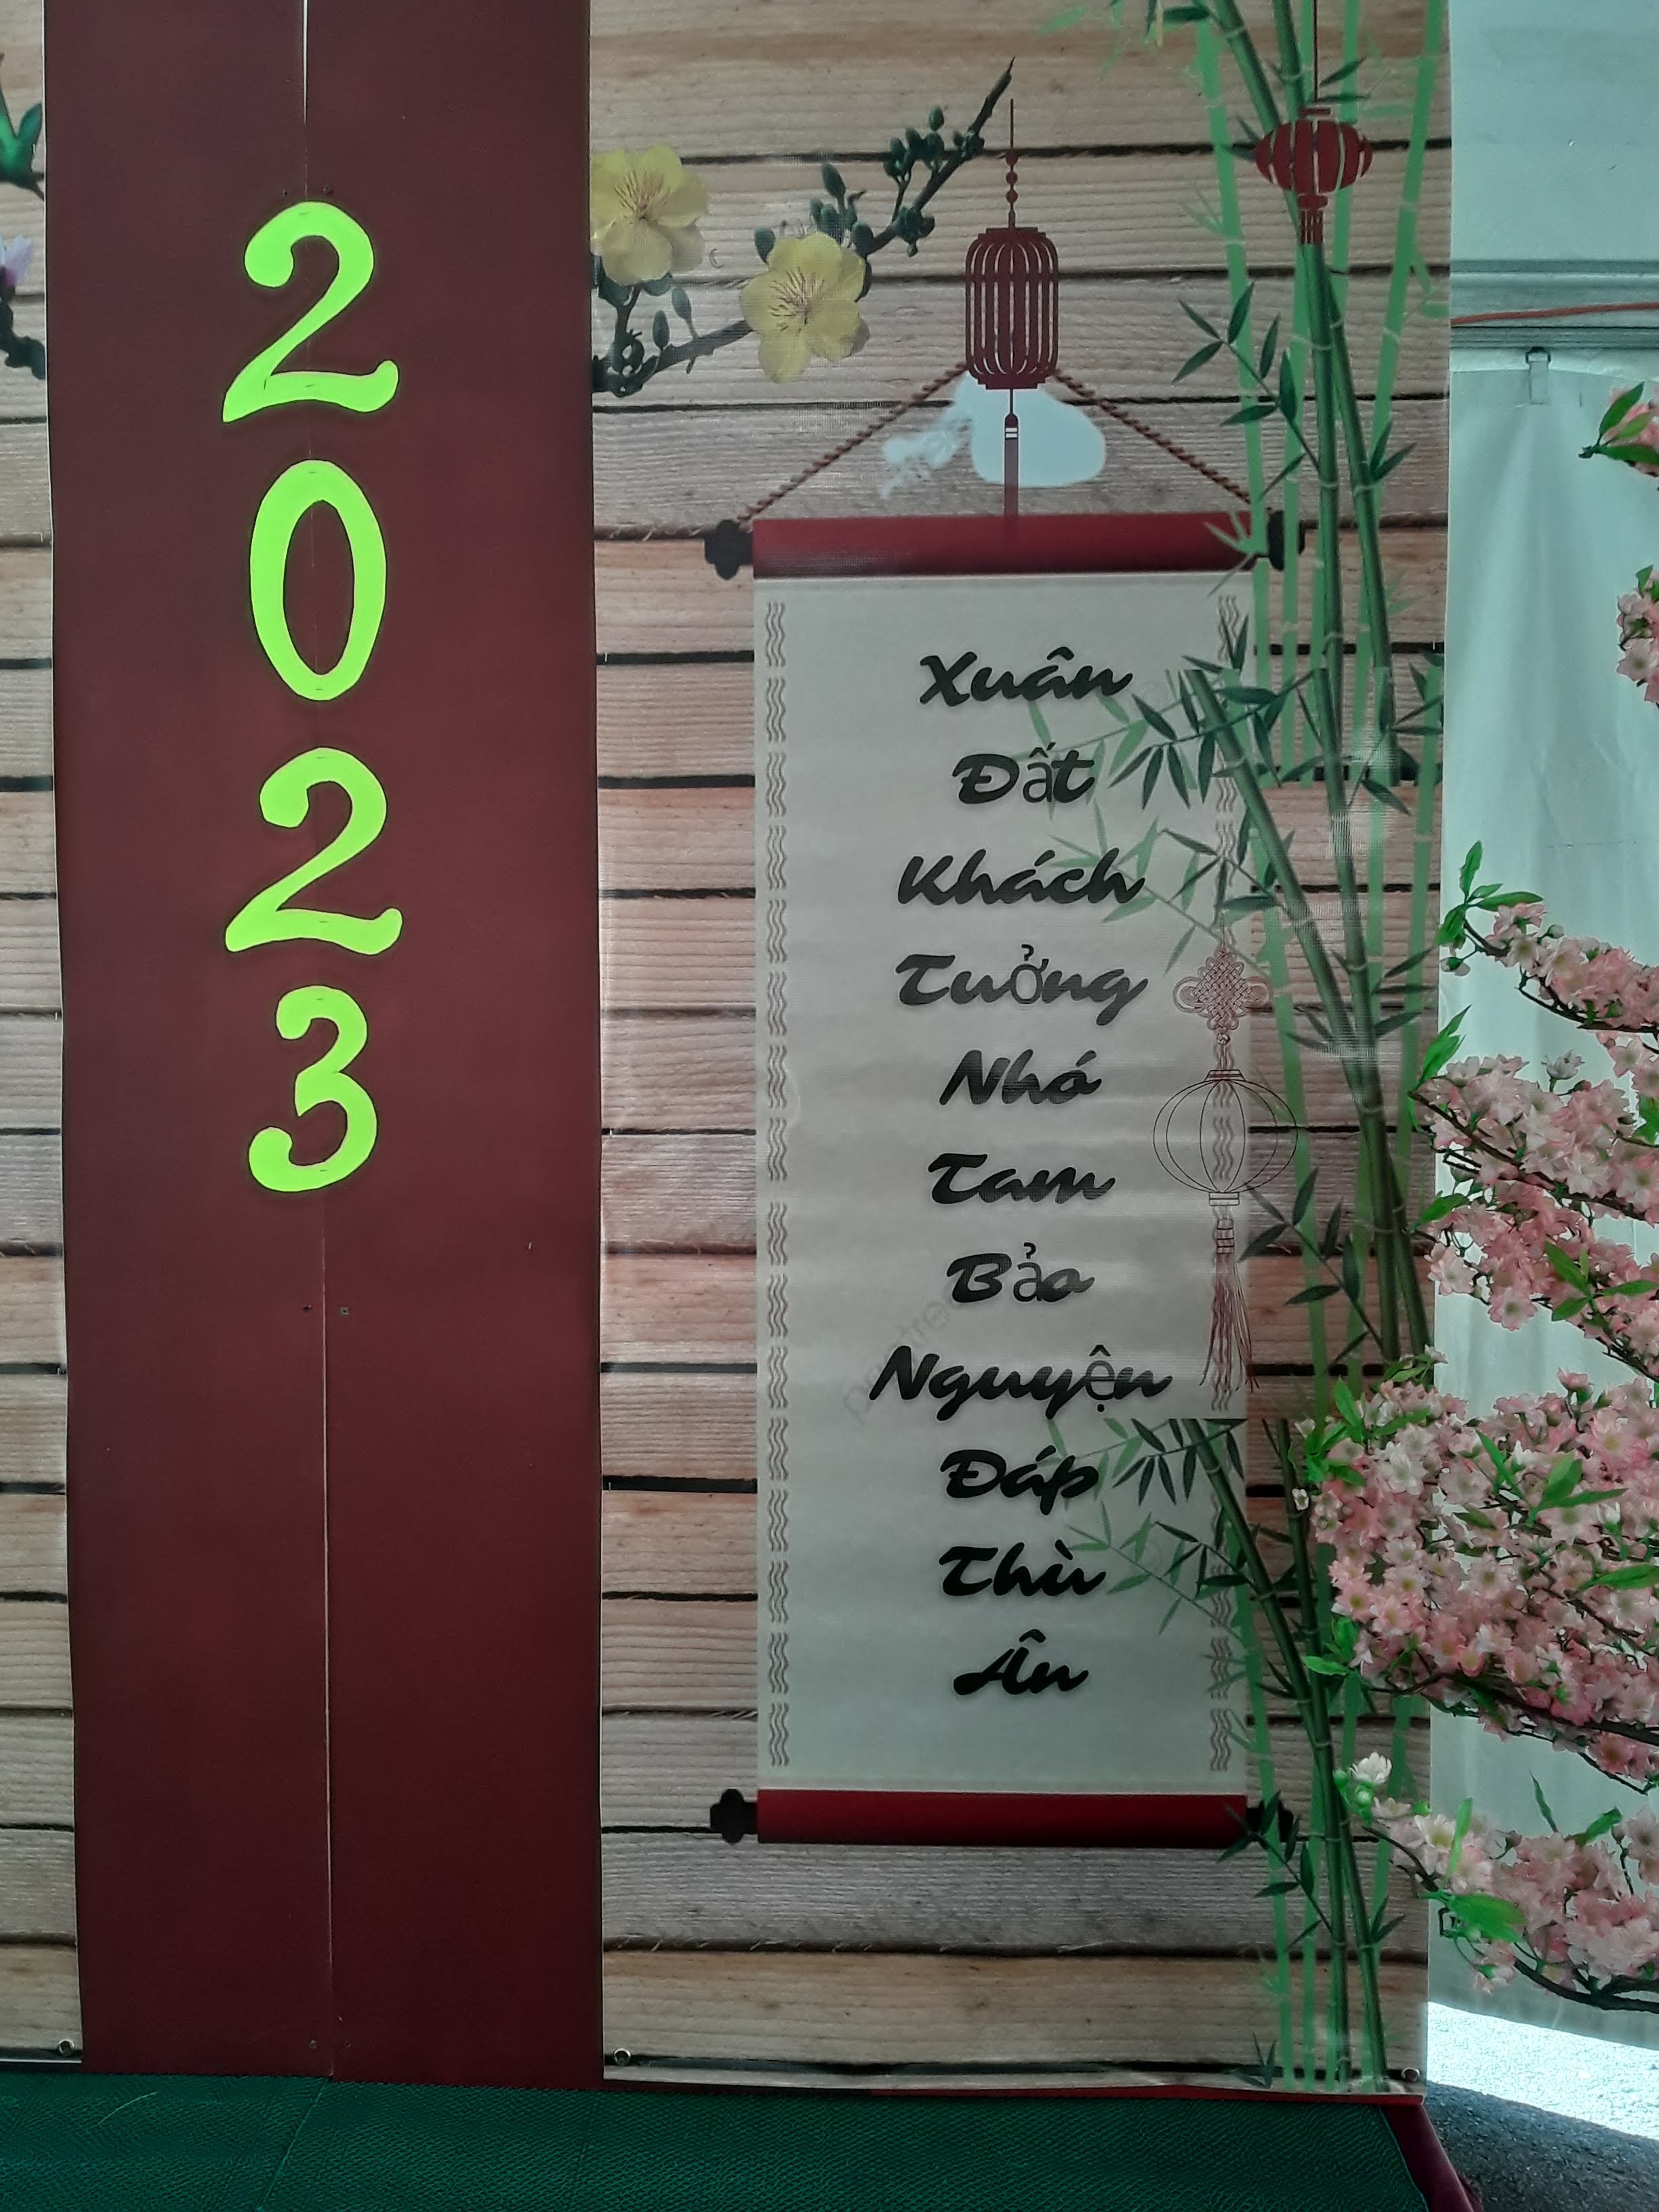 2
0
2
3
Xuân
Đất
Khách
Tưởng
Nhớ
Tam
Bảo
Nguyện
Đáp
Thù
Ân